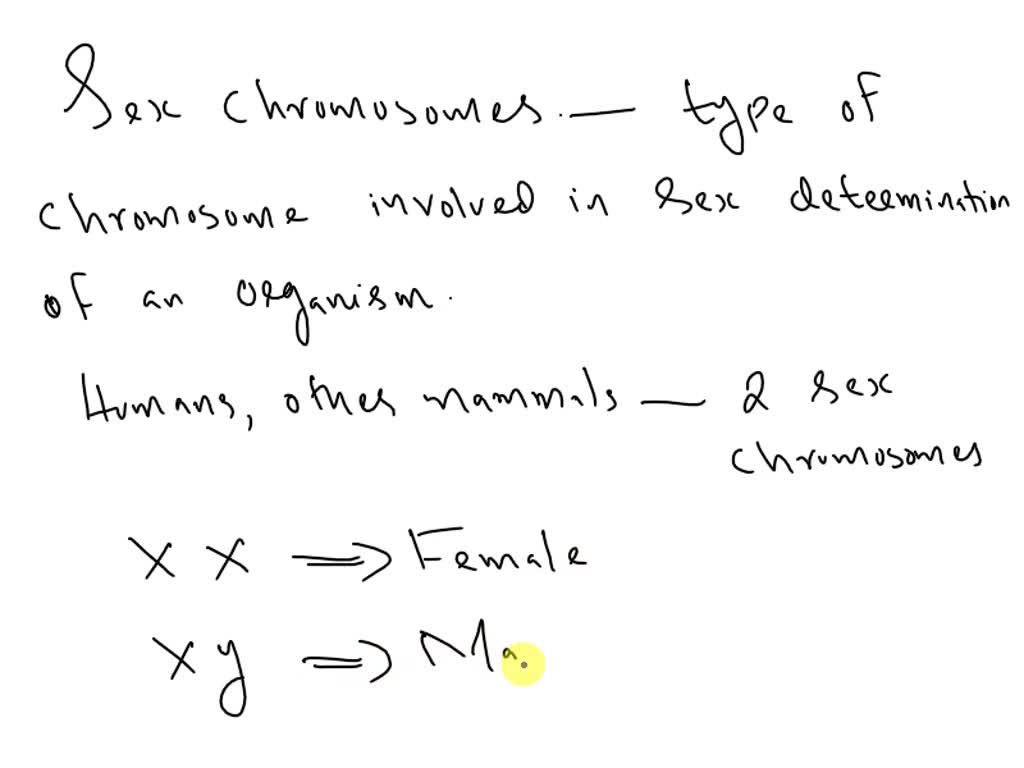 Sex chromosomes. — type of
chromosome involved in sex deteemination
of an organism.
Humans, other mammals — 2 sex
chromosomes
XX ⇒ Female
Xy ⇒ Ma